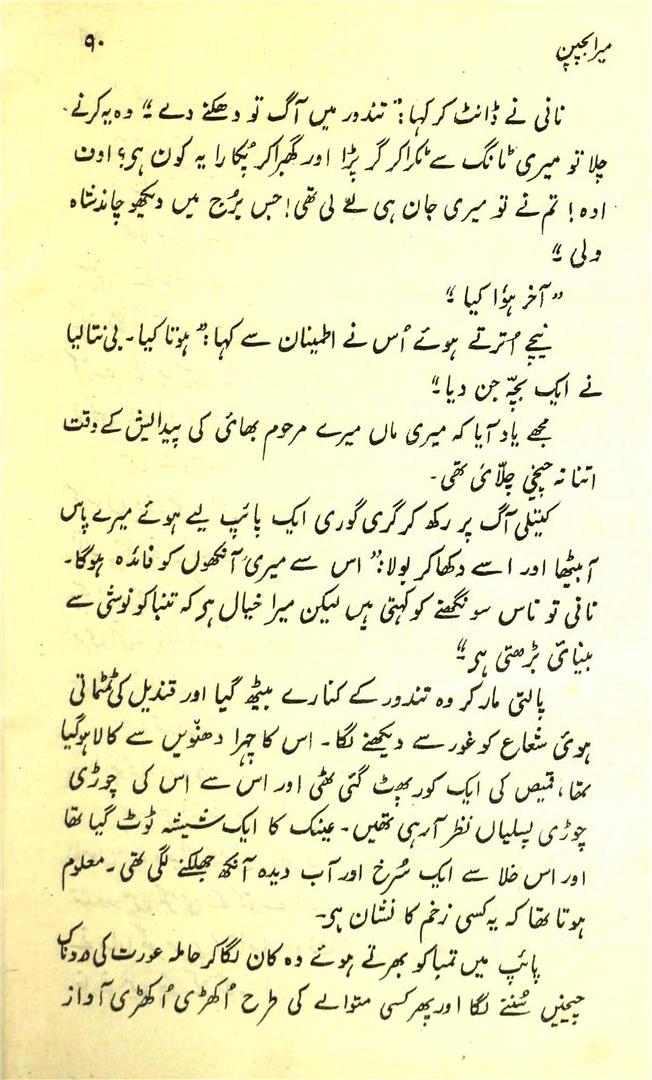 میرا بچپن
۹۰
نانی نے ڈانٹ کر کہا: ”تندور میں آگ تو دھکنے دے۔“ وہ یہ کرنے
چلا تو میری ٹانگ سے ٹکرا کر گر پڑا اور گھبرا کر پُکارا یہ کون ہے؟ اون
اوہ! تم نے تو میری جان ہی لے لی تھی! جس بُرج میں دیکھو چاند شاہ
ولی۔“
”آخر ہؤا کیا۔“
نیچے اُترتے ہوئے اُس نے اطمینان سے کہا: ”ہوتا کیا۔ بی نتالیا
نے ایک بچّہ جن دیا۔“
مجھے یاد آیا کہ میری ماں میرے مرحوم بھائی کی پیدائش کے وقت
اتنا نہ چیخی چلّائی تھی۔
کیتلی آگ پر رکھ کر گری گوری ایک پائپ لیے ہوئے میرے پاس
آ بیٹھا اور اسے دکھا کر بولا: ”اس سے میری آنکھوں کو فائدہ ہوگا۔
نانی تو ناس سونگھنے کو کہتی ہیں لیکن میرا خیال ہے کہ تنباکو نوشی سے
بینائی بڑھتی ہے۔“
پالتی مار کر وہ تندور کے کنارے بیٹھ گیا اور قندیل کی ٹمٹماتی
ہوئی شعاع کو غور سے دیکھنے لگا۔ اس کا چہرا دھنّویں سے کالا ہوگیا
تھا، قمیص کی ایک کور پھٹ گئی تھی اور اس سے اس کی چوڑی
چوڑی پسلیاں نظر آ رہی تھیں۔ عینک کا ایک شیشہ ٹوٹ گیا تھا
اور اس خلا سے ایک سُرخ اور آب دیدہ آنکھ جھلکنے لگی تھی۔ معلوم
ہوتا تھا کہ یہ کسی زخم کا نشان ہے۔
پائپ میں تمباکو بھرتے ہوئے وہ کان لگا کر حاملہ عورت کی دردناک
چیخیں سُننے لگا اور پھر کسی متوالے کی طرح اُکھڑی اُکھڑی آواز